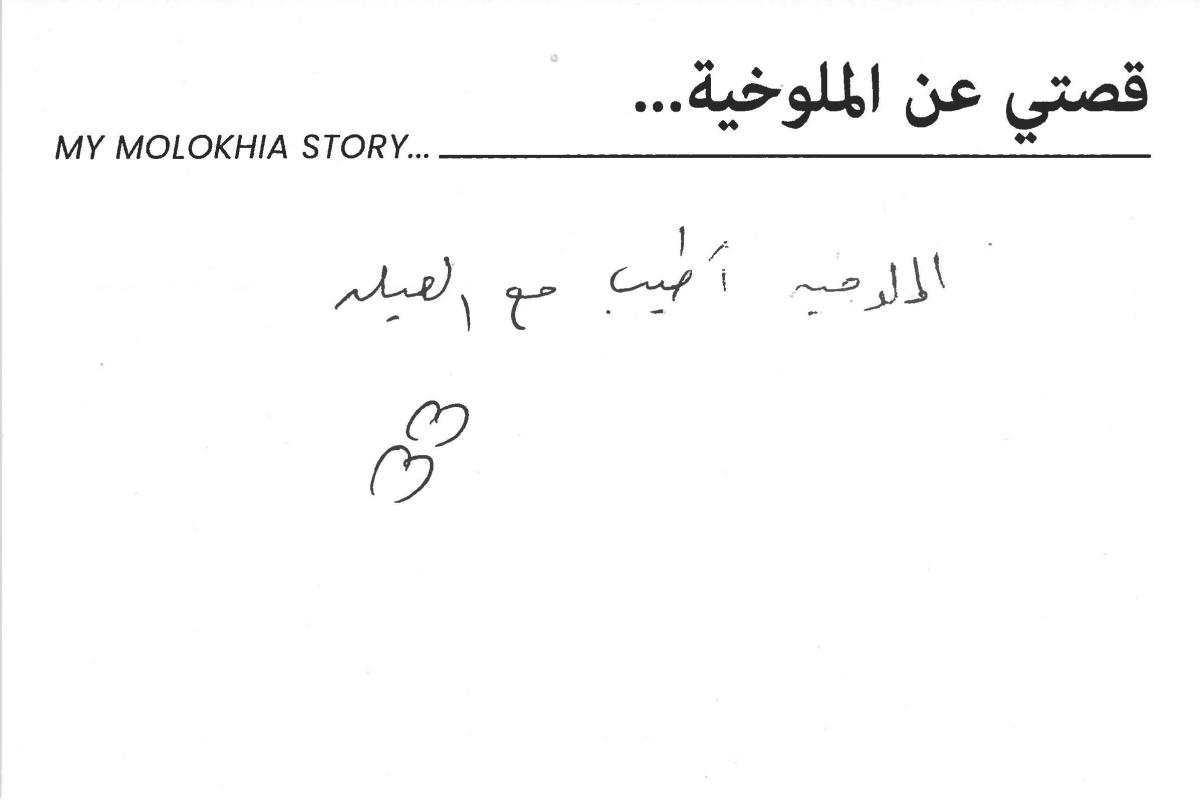 قصتي عن الملوخية...
MY MOLOKHIA STORY...
الملوخيه أطيب مع العيله